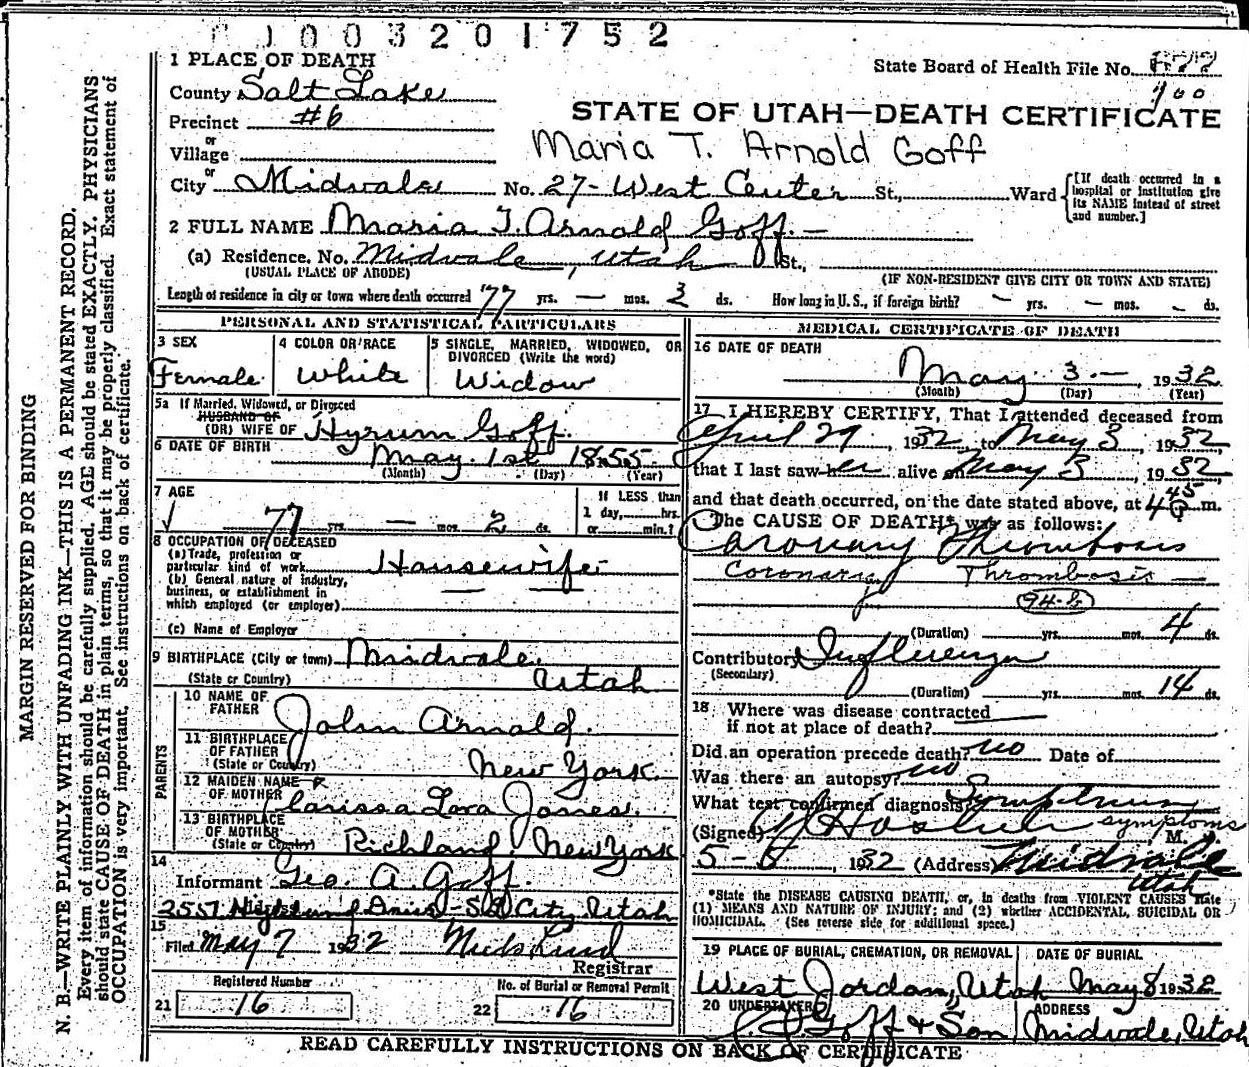 0 1 0 0 3 2 0 1 7 5 2
1 PLACE OF DEATH
State Board of Health File No. 677
700
County Salt Lake
STATE OF UTAH—DEATH CERTIFICATE
Precinct #6
Maria T. Arnold Goff
or
Village
or
City Midvale No. 27- West Center St., Ward
[If death occurred in a hospital or institution give its NAME instead of street and number.]
2 FULL NAME Maria T. Arnold Goff.-
(a) Residence. No. Midvale, Utah St.,
(USUAL PLACE OF ABODE) (IF NON-RESIDENT GIVE CITY OR TOWN AND STATE)
Length of residence in city or town where death occurred 77 yrs. — mos. 2 ds. How long in U.S., if foreign birth? — yrs. — mos. — ds.
PERSONAL AND STATISTICAL PARTICULARS
3 SEX
Female
4 COLOR OR RACE
White
5 SINGLE, MARRIED, WIDOWED, OR DIVORCED (Write the word)
Widow
5a If Married, Widowed, or Divorced
HUSBAND OF
(OR) WIFE OF Hyrum Goff.
6 DATE OF BIRTH May 1st 1855
(Month) (Day) (Year)
7 AGE
77 yrs. — mos. 2 ds.
If LESS than
1 day, hrs.
or min.?
8 OCCUPATION OF DECEASED
(a) Trade, profession or
particular kind of work Housewife
(b) General nature of industry,
business, or establishment in
which employed (or employer)
(c) Name of Employer
9 BIRTHPLACE (City or town) Midvale,
(State or Country) Utah
PARENTS
10 NAME OF
FATHER John Arnold.
11 BIRTHPLACE
OF FATHER
(State or Country) New York
12 MAIDEN NAME
OF MOTHER Clarissa Lora Jones.
13 BIRTHPLACE
OF MOTHER
(State or Country) Richland, New York
14
Informant Geo. A. Goff.
2557 Highland Drive - S L City, Utah
15
Filed May 7 1932
Registrar
Registered Number
21 16
No. of Burial or Removal Permit
22 16
MEDICAL CERTIFICATE OF DEATH
16 DATE OF DEATH
May 3.—, 1932
(Month) (Day) (Year)
17 I HEREBY CERTIFY, That I attended deceased from
April 29, 1932 to May 3, 1932,
that I last saw her alive on May 3, 1932,
and that death occurred, on the date stated above, at 4 45 P m.
The CAUSE OF DEATH* was as follows:
Coronary Thrombosis
Coronary Thrombosis —
94-b
(Duration) yrs. mos. 4 ds.
Contributory Influenza
(Secondary)
(Duration) yrs. mos. 14 ds.
18 Where was disease contracted
if not at place of death?
Did an operation precede death? no Date of
Was there an autopsy? no
What test confirmed diagnosis? Symptoms
symptoms
(Signed) M. D.
1932 (Address) Midvale
Utah
*State the DISEASE CAUSING DEATH, or, in deaths from VIOLENT CAUSES state
(1) MEANS AND NATURE OF INJURY; and (2) whether ACCIDENTAL, SUICIDAL OR
HOMICIDAL. (See reverse side for additional space.)
19 PLACE OF BURIAL, CREMATION, OR REMOVAL
West Jordan, Utah
DATE OF BURIAL
May 8 1932
20 UNDERTAKER
Goff & Son
ADDRESS
Midvale, Utah
READ CAREFULLY INSTRUCTIONS ON BACK OF CERTIFICATE
MARGIN RESERVED FOR BINDING
N. B.—WRITE PLAINLY WITH UNFADING INK—THIS IS A PERMANENT RECORD.
Every item of information should be carefully supplied. AGE should be stated EXACTLY. PHYSICIANS
should state CAUSE OF DEATH in plain terms, so that it may be properly classified. Exact statement of
OCCUPATION is very important. See instructions on back of certificate.